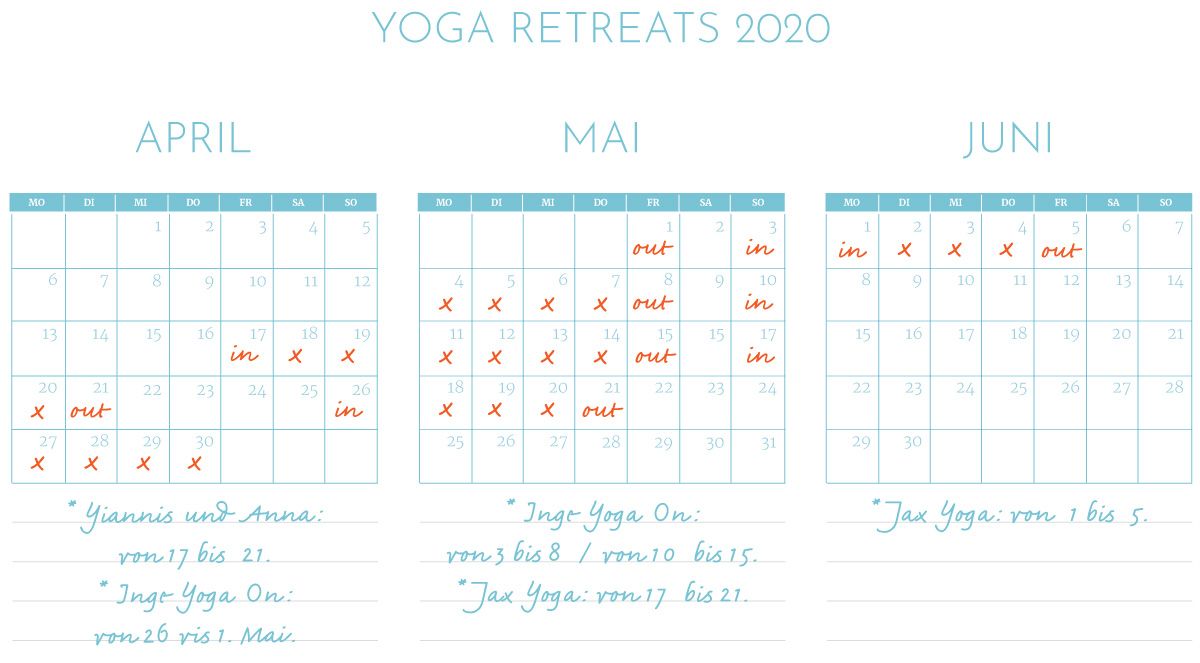 YOGA RETREATS 2020
APRIL
MO DI MI DO FR SA SO
1 2 3 4 5
6 7 8 9 10 11 12
13 14 15 16 17 18 19
in x x
20 21 22 23 24 25 26
x out in
27 28 29 30
x x x x
* Yiannis und Anna:
von 17 bis 21.
* Inge Yoga On:
von 26 vis 1. Mai.
MAI
MO DI MI DO FR SA SO
1 2 3
out in
4 5 6 7 8 9 10
x x x x out in
11 12 13 14 15 15 17
x x x x out in
18 19 20 21 22 23 24
x x x out
25 26 27 28 29 30 31
* Inge Yoga On:
von 3 bis 8 / von 10 bis 15.
* Jax Yoga: von 17 bis 21.
JUNI
MO DI MI DO FR SA SO
1 2 3 4 5 6 7
in x x x out
8 9 10 11 12 13 14
15 16 17 18 19 20 21
22 23 24 25 26 27 28
29 30
* Jax Yoga: von 1 bis 5.